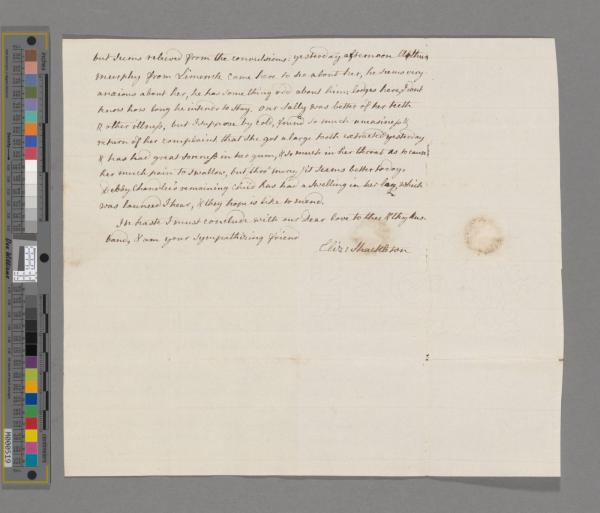 but seems relieved from the convulsions: yesterday afternoon Arthur
Murphy from Limerick came here to see about her, he seems very
anxious about her, he has something odd about him; lodges here, I dont
know how long he intends to stay. Our Sally was better of her teeth
& other illness, but I suppose by cold, found so much uneasiness &
return of her complaint that she got a large tooth extracted yesterday
& has had great soreness in her gum, & so much in her throat as to cause
her much pain to swallow, but thro' mercy it seems better today.
Debby Chandlee's remaining Child has had a swelling in her leg, which
was launced I hear, & they hope is like to mend.
In haste I must conclude with our dear love to thee & thy hus-
band, & am your sympathizing friend
Eliz: Shackleton
M000519
inches
centimeters
Don Williams